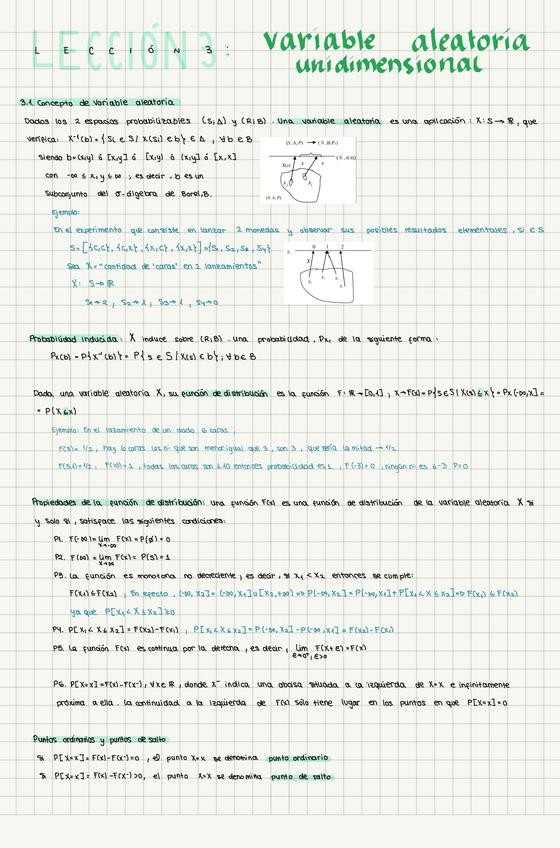 LECCIÓN 3: variable aleatoria
unidimensional
3.1 Concepto de variable aleatoria
Dados los 2 espacios probabilizables (S;Δ) y (R;B). Una variable aleatoria es una aplicación: X: S→ℝ, que
verifica: X⁻¹(b)={Si ∈ S/ X(Si) ∈ b} ∈ Δ, ∀b ∈ B
siendo b=(x,y) ó [x,y] ó [x,y) ó (x,y] ó [x,x]
con -∞ ≤ x,y ≤ ∞, es decir, b es un
subconjunto del σ-álgebra de Borel,B.
Ejemplo:
En el experimento que consiste en lanzar 2 monedas y observar sus posibles resultados elementales, Si ∈ S
S=[{C,C}, {C,X}, {X,C}, {X,X}]={S₁, S₂, S₃, S₄}
Sea X="cantidad de 'caras' en 2 lanzamientos"
X: S→ℝ
S₁→2, S₂→1, S₃→1, S₄→0
Probabilidad inducida: X induce sobre (R;B) una probabilidad, Px, de la siguiente forma:
Px(b)=P{X⁻¹(b)}= P{s ∈ S/ X(s) ∈ b}; ∀b ∈ B
Dada una variable aleatoria X, su función de distribución es la función F: ℝ→[0,1], X→F(x)=P{s∈S/X(s)≤x}=Px(-∞,x]=
= P(X≤x)
Ejemplo: En el lazamiento de un dado 6 caras,
F(3)= 1/2, hay 6 caras los nº que son menor igual que 3, son 3, que sería la mitad → 1/2
F(3,1)=1/2, F(10)=1, todas las caras son ≤10 entonces probabilidad es 1, F(-3)=0, ningún nº es ≤-3 P=0
Propiedades de la función de distribución: una función F(x) es una función de distribución de la variable aleatoria X si
y solo si, satisface las siguientes condiciones:
P1. F(-∞)=lim F(x)=P(ø)=0
x→-∞
P2. F(∞)=lim F(x)=P(S)=1
x→∞
P3. La función es monótona no decreciente, es decir, si x₁<x₂ entonces se cumple:
F(x₁)≤F(x₂), En efecto, (-∞, x₂]=(-∞,x₁]∪[x₂,+∞)⇒P(-∞,x₂]=P(-∞,x₁]+P[x₁<X≤x₂]⇒F(x₁)≤F(x₂)
ya que P[x₁<X≤x₂]≥0
P4. P[x₁<X≤x₂]=F(x₂)-F(x₁), P[x₁<X≤x₂]=P(-∞,x₂]-P(-∞,x₁]=F(x₂)-F(x₁)
P5. La función F(x) es continua por la derecha, es decir, lim F(x+ε)=F(x)
ε→0⁺, ε>0
P6. P[X=x]=F(x)-F(x⁻), ∀x∈ℝ, donde x⁻ indica una abcisa situada a la izquierda de X=x e infinitamente
próxima a ella. la continuidad a la izquierda de F(x) sólo tiene lugar en los puntos en que P[X=x]=0
Puntos ordinarios y puntos de salto
Si P[X=x]=F(x)-F(x⁻)=0, el punto X=x se denomina punto ordinario
Si P[X=x]=F(x)-F(x⁻)>0, el punto X=x se denomina punto de salto